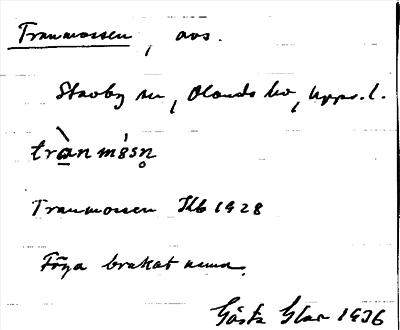 Tranmossen, avs.
Stavby sn, Olands hd, Upps. l.
tràn mɷ́sn̥
Tranmossen Jkb 1928
Föga brukat namn.
Gösta Glas 1936